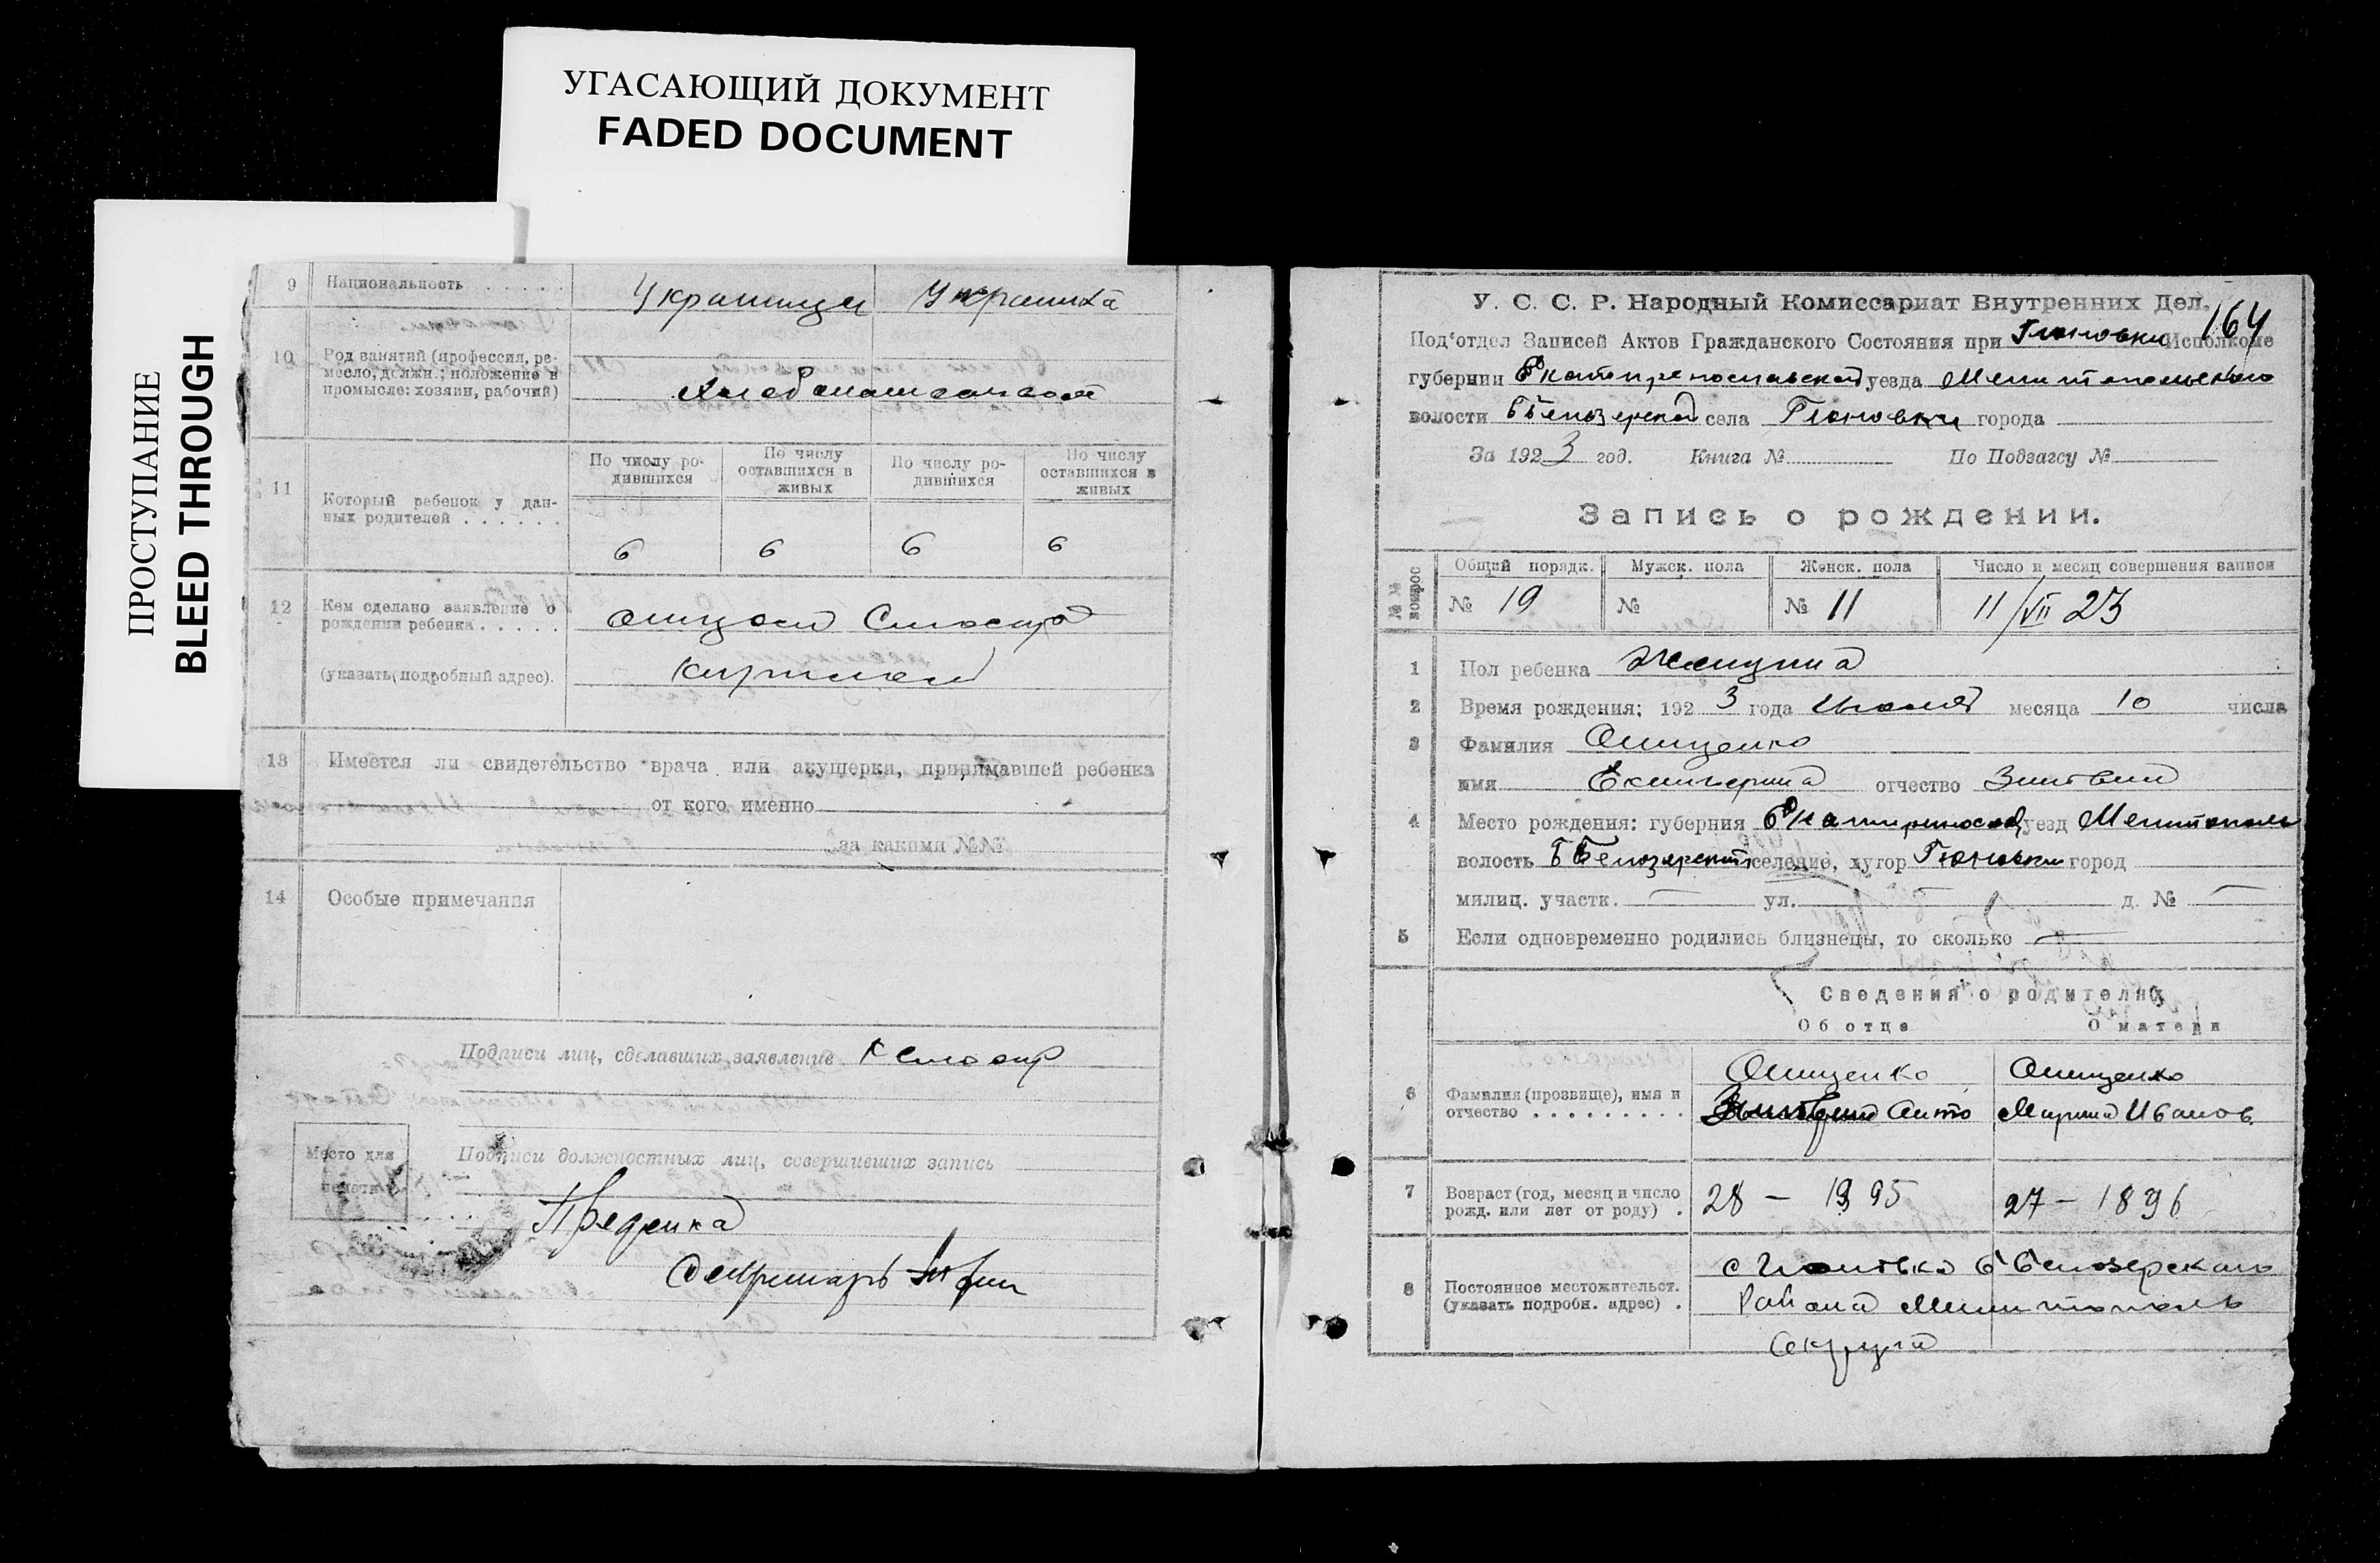 УГАСАЮЩИЙ ДОКУМЕНТ
FADED DOCUMENT
ПРОСТУПАНИЕ
BLEED THROUGH
9 Национальность . . . . . Украинцы Украинка
10 Род занятий (профессия, ре-
месло, должн.; положение в
промысле: хозяин, рабочий)
11 Который ребенок у дан-
ных родителей . . . . . .
По числу ро-
дившихся
По числу
оставшихся в
живых
По числу ро-
дившихся
По числу
оставшихся в
живых
6 6 6 6
12 Кем сделано заявление о
рождении ребенка . . . . .
(указать подробный адрес).
13 Имеется ли свидетельство врача или акушерки, принимавшей ребенка
от кого именно
за какими №№
14 Особые примечания
Подписи лиц, сделавших заявление
Место для
печати.
Подписи должностных лиц, совершивших запись
Секретарь
164
У. С. С. Р. Народный Комиссариат Внутренних Дел.
Под'отдел Записей Актов Гражданского Состояния при Тюновки Исполкоме
губернии Екатеринославской уезда Мелитопольского
волости Б Белозерской села Тюновки города
За 1923 год. Книга № По Подзагсу №
Запись о рождении.
№№ вопрос
Общий порядк. Мужск. пола Женск. пола Число и месяц совершения записи
№ 19 № № 11 11/VII 23
1 Пол ребенка Женщина
2 Время рождения: 1923 года Июля месяца 10 числа
3 Фамилия Онищенко
имя Екатерина отчество
4 Место рождения: губерния Екатеринослав уезд Мелитополь
волость Б Белозерской селение, хутор Тюновки город
милиц. участк. — ул. д. № —
5 Если одновременно родились близнецы, то сколько —
Сведения о родителях
Об отце О матери
6 Фамилия (прозвище), имя и
отчество . . . . . . . . .
Онищенко Онищенко
Анто Марина Иванов.
7 Возраст (год, месяц и число
рожд. или лет от роду) .
28 — 1895 27 — 1896
8 Постоянное местожительст.
(указать подробн. адрес) .
Б Белозерского
Района Мелитополь
Округа